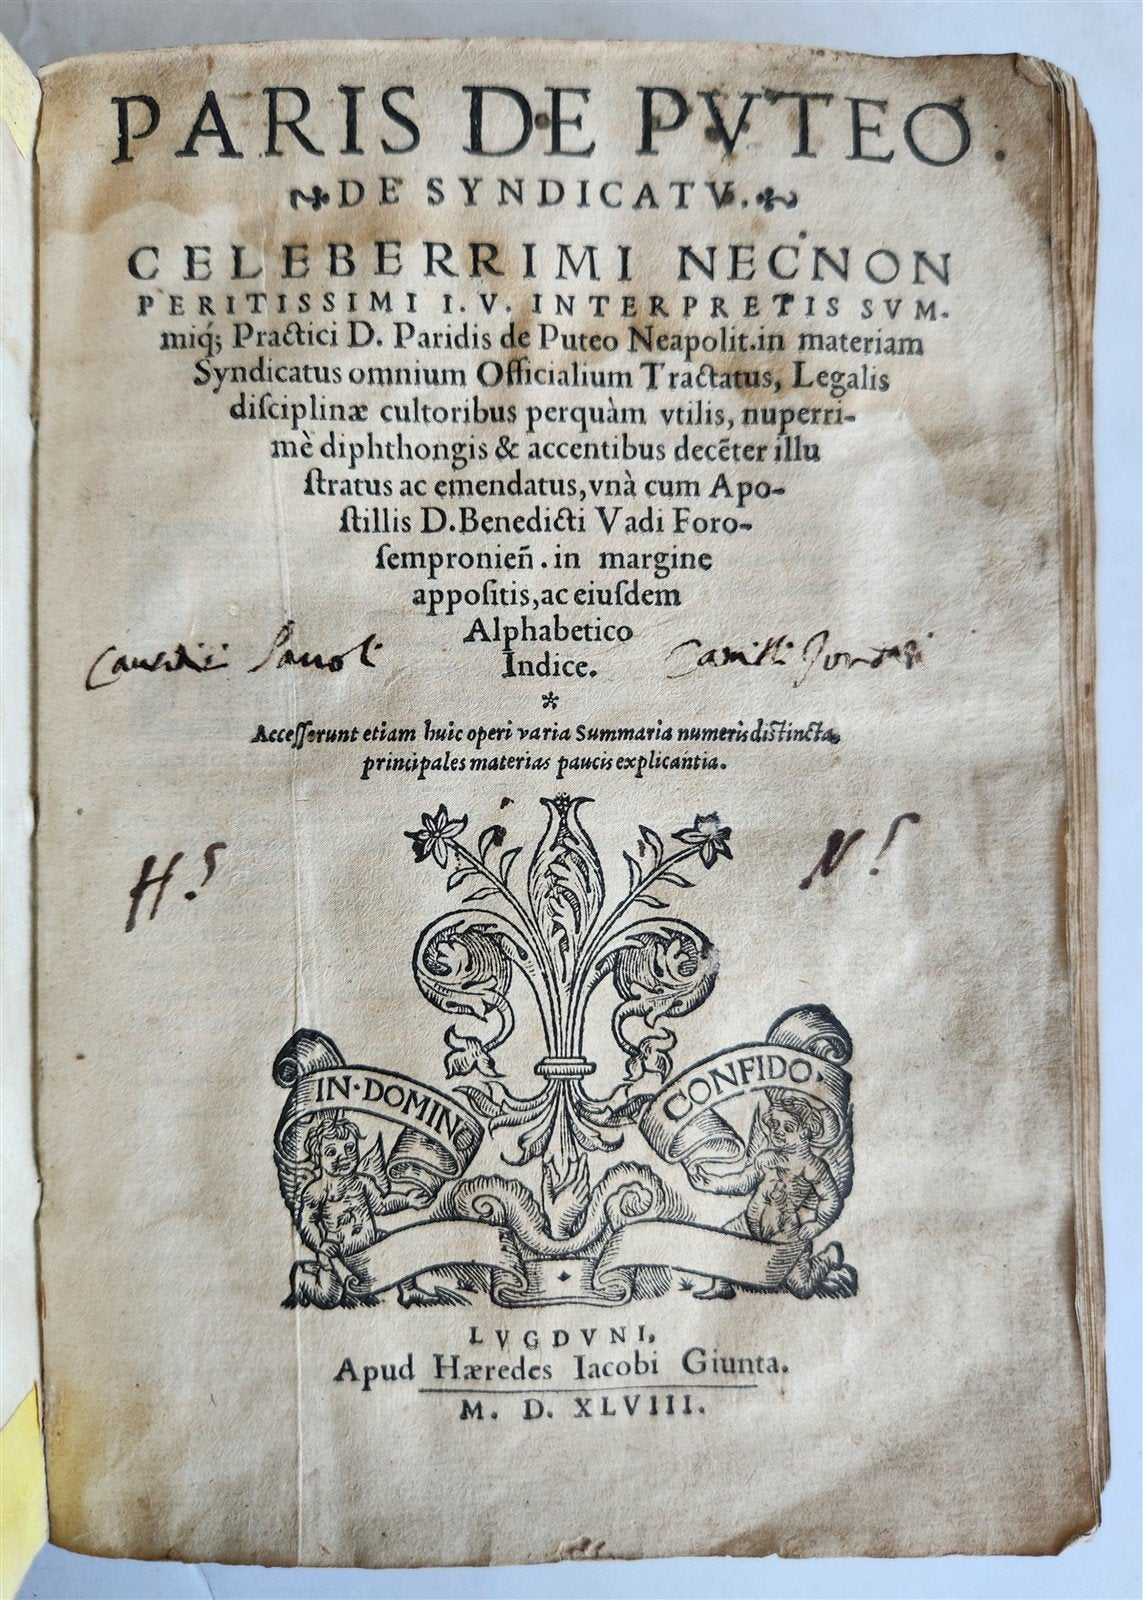 PARIS DE PVTEO.
DE SYNDICATV.
CELEBERRIMI NECNON
PERITISSIMI I. V. INTERPRETIS SVM-
miq́; Practici D. Paridis de Puteo Neapolit. in materiam
Syndicatus omnium Officialium Tractatus, Legalis
diſciplinæ cultoribus perquàm vtilis, nuperri-
mè diphthongis & accentibus decẽter illu
ſtratus ac emendatus, vnà cum Apo-
ſtillis D. Benedicti Vadi Foro-
ſemproniẽn. in margine
appoſitis, ac eiuſdem
Alphabetico
Indice.
*
Acceſſerunt etiam huic operi varia Summaria numeris diſtincta,
principales materias paucis explicantia.
H.S
N.S
IN·DOMINO
CONFIDO.
LVGDVNI,
Apud Hæredes Iacobi Giunta.
M. D. XLVIII.